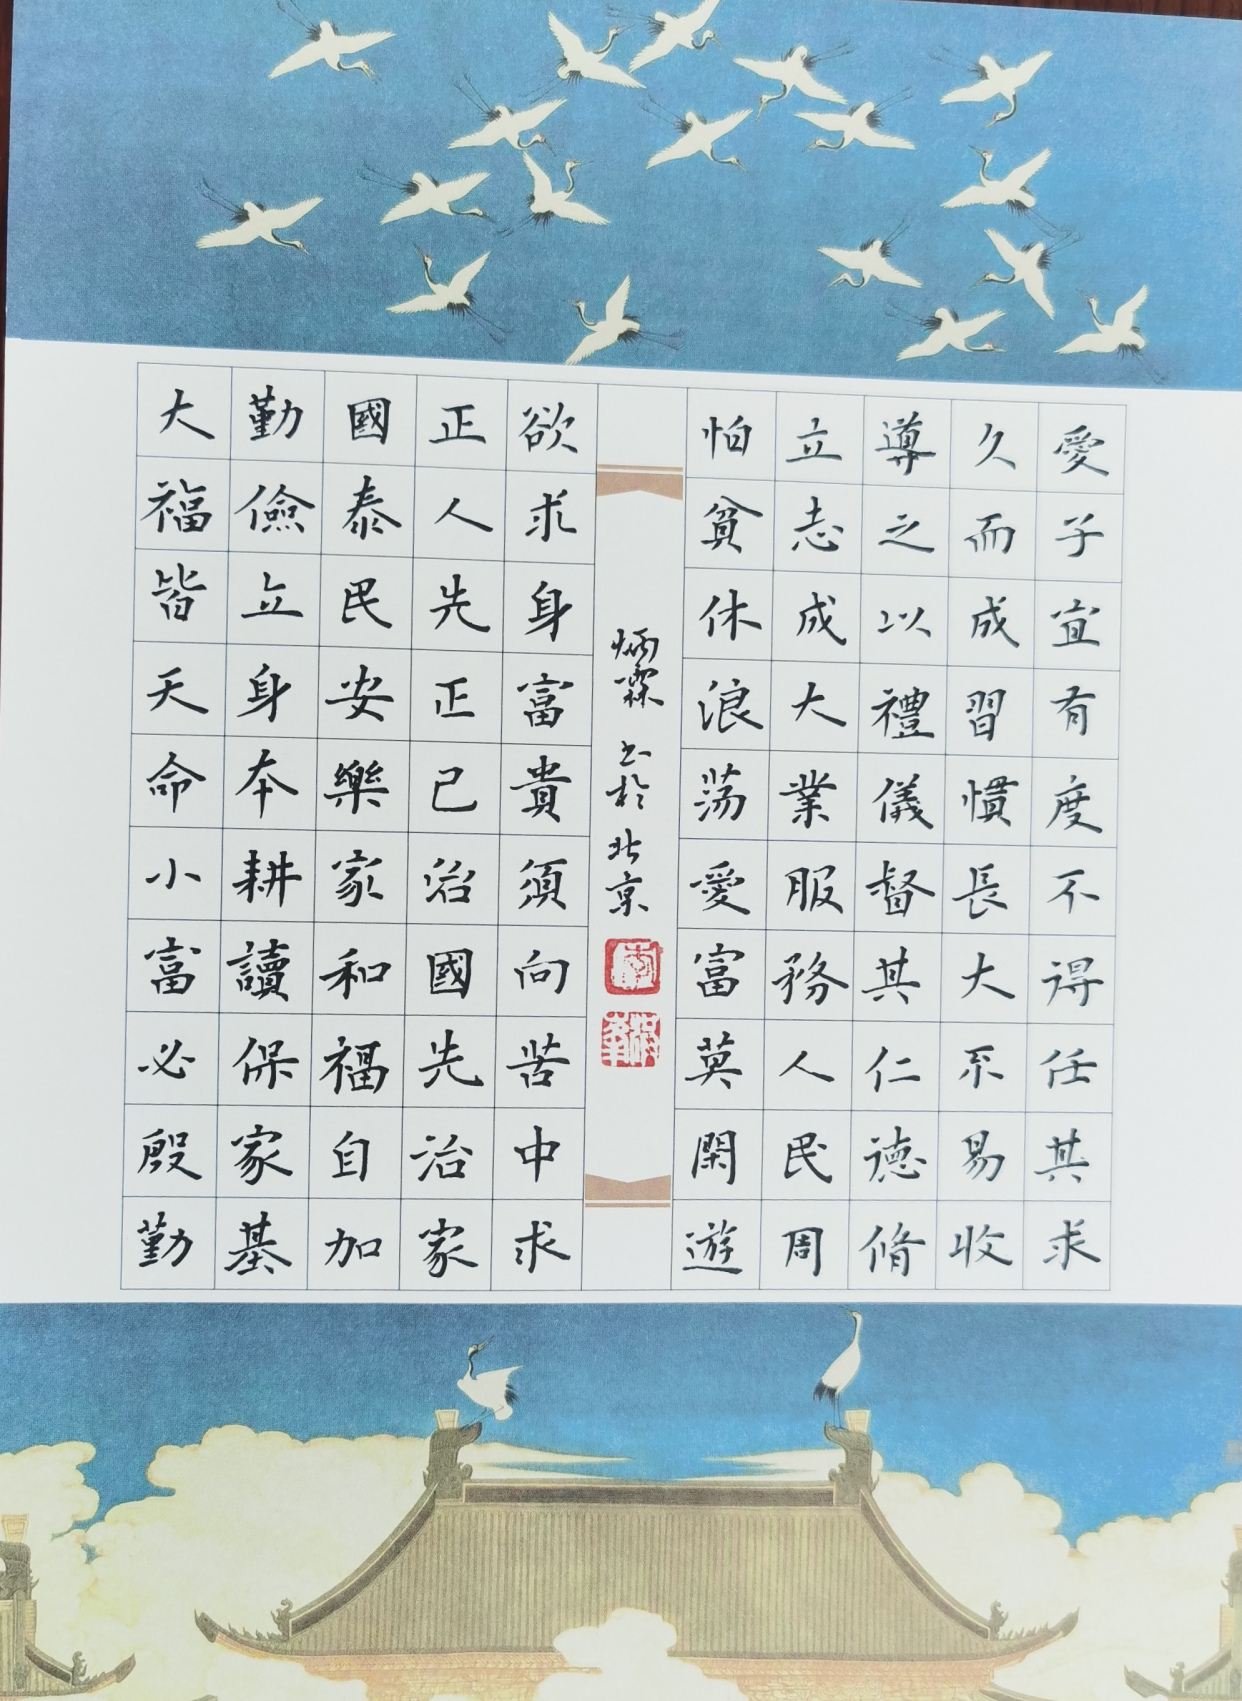 愛子宜有度不得任其求
久而成習慣長大不易收
導之以禮儀督其仁德脩
立志成大業服務人民周
怕貧休浪荡愛富莫閑遊
炳霖 书於北京
欲求身富貴須向苦中求
正人先正己治國先治家
國泰民安樂家和福自加
勤儉立身本耕讀保家基
大福皆天命小富必殷勤